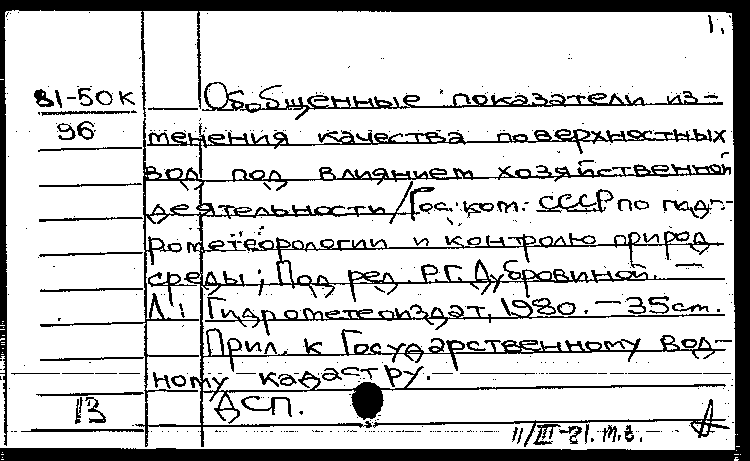 1.
81-50К
96
Обобщенные показатели из-
менения качества поверхностных
вод под влиянием хозяйственной
деятельности/Гос. ком. СССР по гидр-
рометеорологии и контролю природ.
среды; Под ред. Р.Г. Дубровиной. —
Л.: Гидрометеоиздат, 1980. — 35 см.
Прил. к Государственному вод-
ному кадастру.
13 ДСП.
11/III-81. т.з. Д